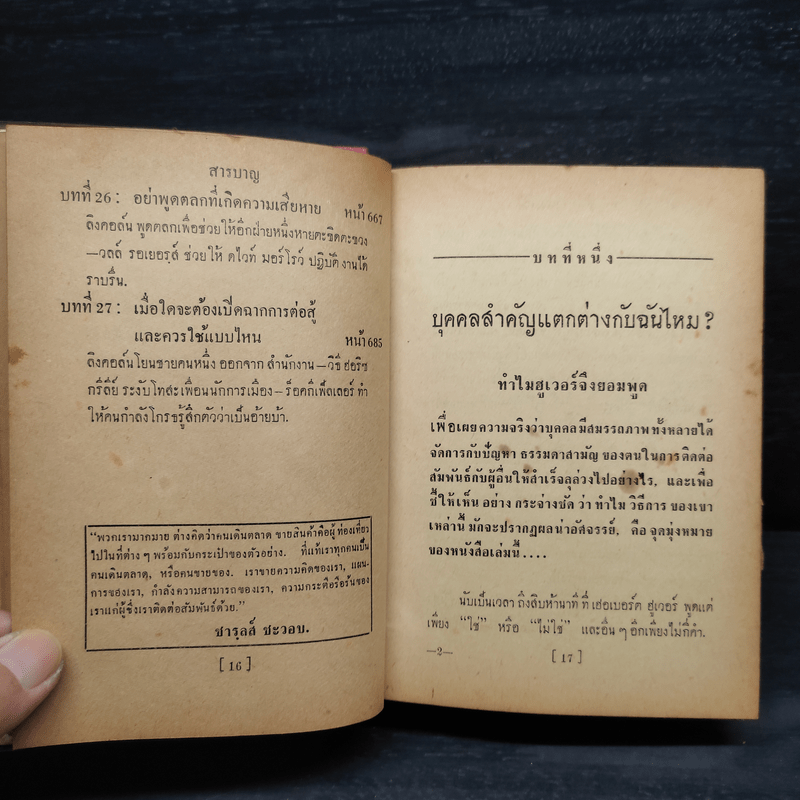 สารบาญ
บทที่ 26 : อย่าพูดตลกที่เกิดความเสียหาย หน้า 667
ลิงคอล์น พูดตลกเพื่อช่วยให้อีกฝ่ายหนึ่งหายตะขิดตะขวง
—วิลล์ รอเยอรส์ ช่วยให้ ดไวท์ มอร์โรว์ ปฏิบัติงานได้
ราบรื่น.
บทที่ 27 : เมื่อใดจะต้องเปิดฉากการต่อสู้
และควรใช้แบบไหน หน้า 685
ลิงคอล์นโยนชายคนหนึ่ง ออกจาก สำนักงาน—วิธี ฮอริซ
กรีลีย์ ระงับโทสะเพื่อนนักการเมือง—ร็อคกี้เฟ็ลเลอร์ ทำ
ให้คนกำลังโกรธรู้สึกตัวว่าเป็นอ้ายบ้า.
“พวกเรามากมาย ต่างคิดว่าคนเดินตลาด ขายสินค้าคือผู้ ท่องเที่ยว
ไปในที่ต่าง ๆ พร้อมกับกระเป๋าของตัวอย่าง. ที่แท้เราทุกคนเป็น
คนเดินตลาด, หรือคนขายของ. เราขายความคิดของเรา, แผน-
การของเรา, กำลังความสามารถของเรา, ความกระตือรือร้นของ
เราแก่ผู้ซึ่งเราติดต่อสัมพันธ์ด้วย.”
ชารุลส์ ชะวอบ.
[ 16 ]
บทที่หนึ่ง
บุคคลสำคัญแตกต่างกับฉันไหม ?
ทำไมฮูเวอร์จึงยอมพูด
เพื่อเผยความจริงว่าบุคคลมีสมรรถภาพทั้งหลายได้
จัดการกับปัญหา ธรรมดาสามัญ ของตนในการติดต่อ
สัมพันธ์กับผู้อื่นให้สำเร็จลุล่วงไปอย่างไร, และเพื่อ
ชี้ให้เห็น อย่าง กระจ่างชัด ว่า ทำไม วิธีการ ของเขา
เหล่านี้ มักจะปรากฏผลน่าอัศจรรย์, คือ จุดมุ่งหมาย
ของหนังสือเล่มนี้ . . . .
นับเป็นเวลา ถึงสิบห้านาที ที่ เฮอเบอร์ต ฮูเวอร์ พูดแต่
เพียง “ใช่” หรือ “ไม่ใช่” และอื่น ๆ อีกเพียงไม่กี่คำ.
—2—
[ 17 ]